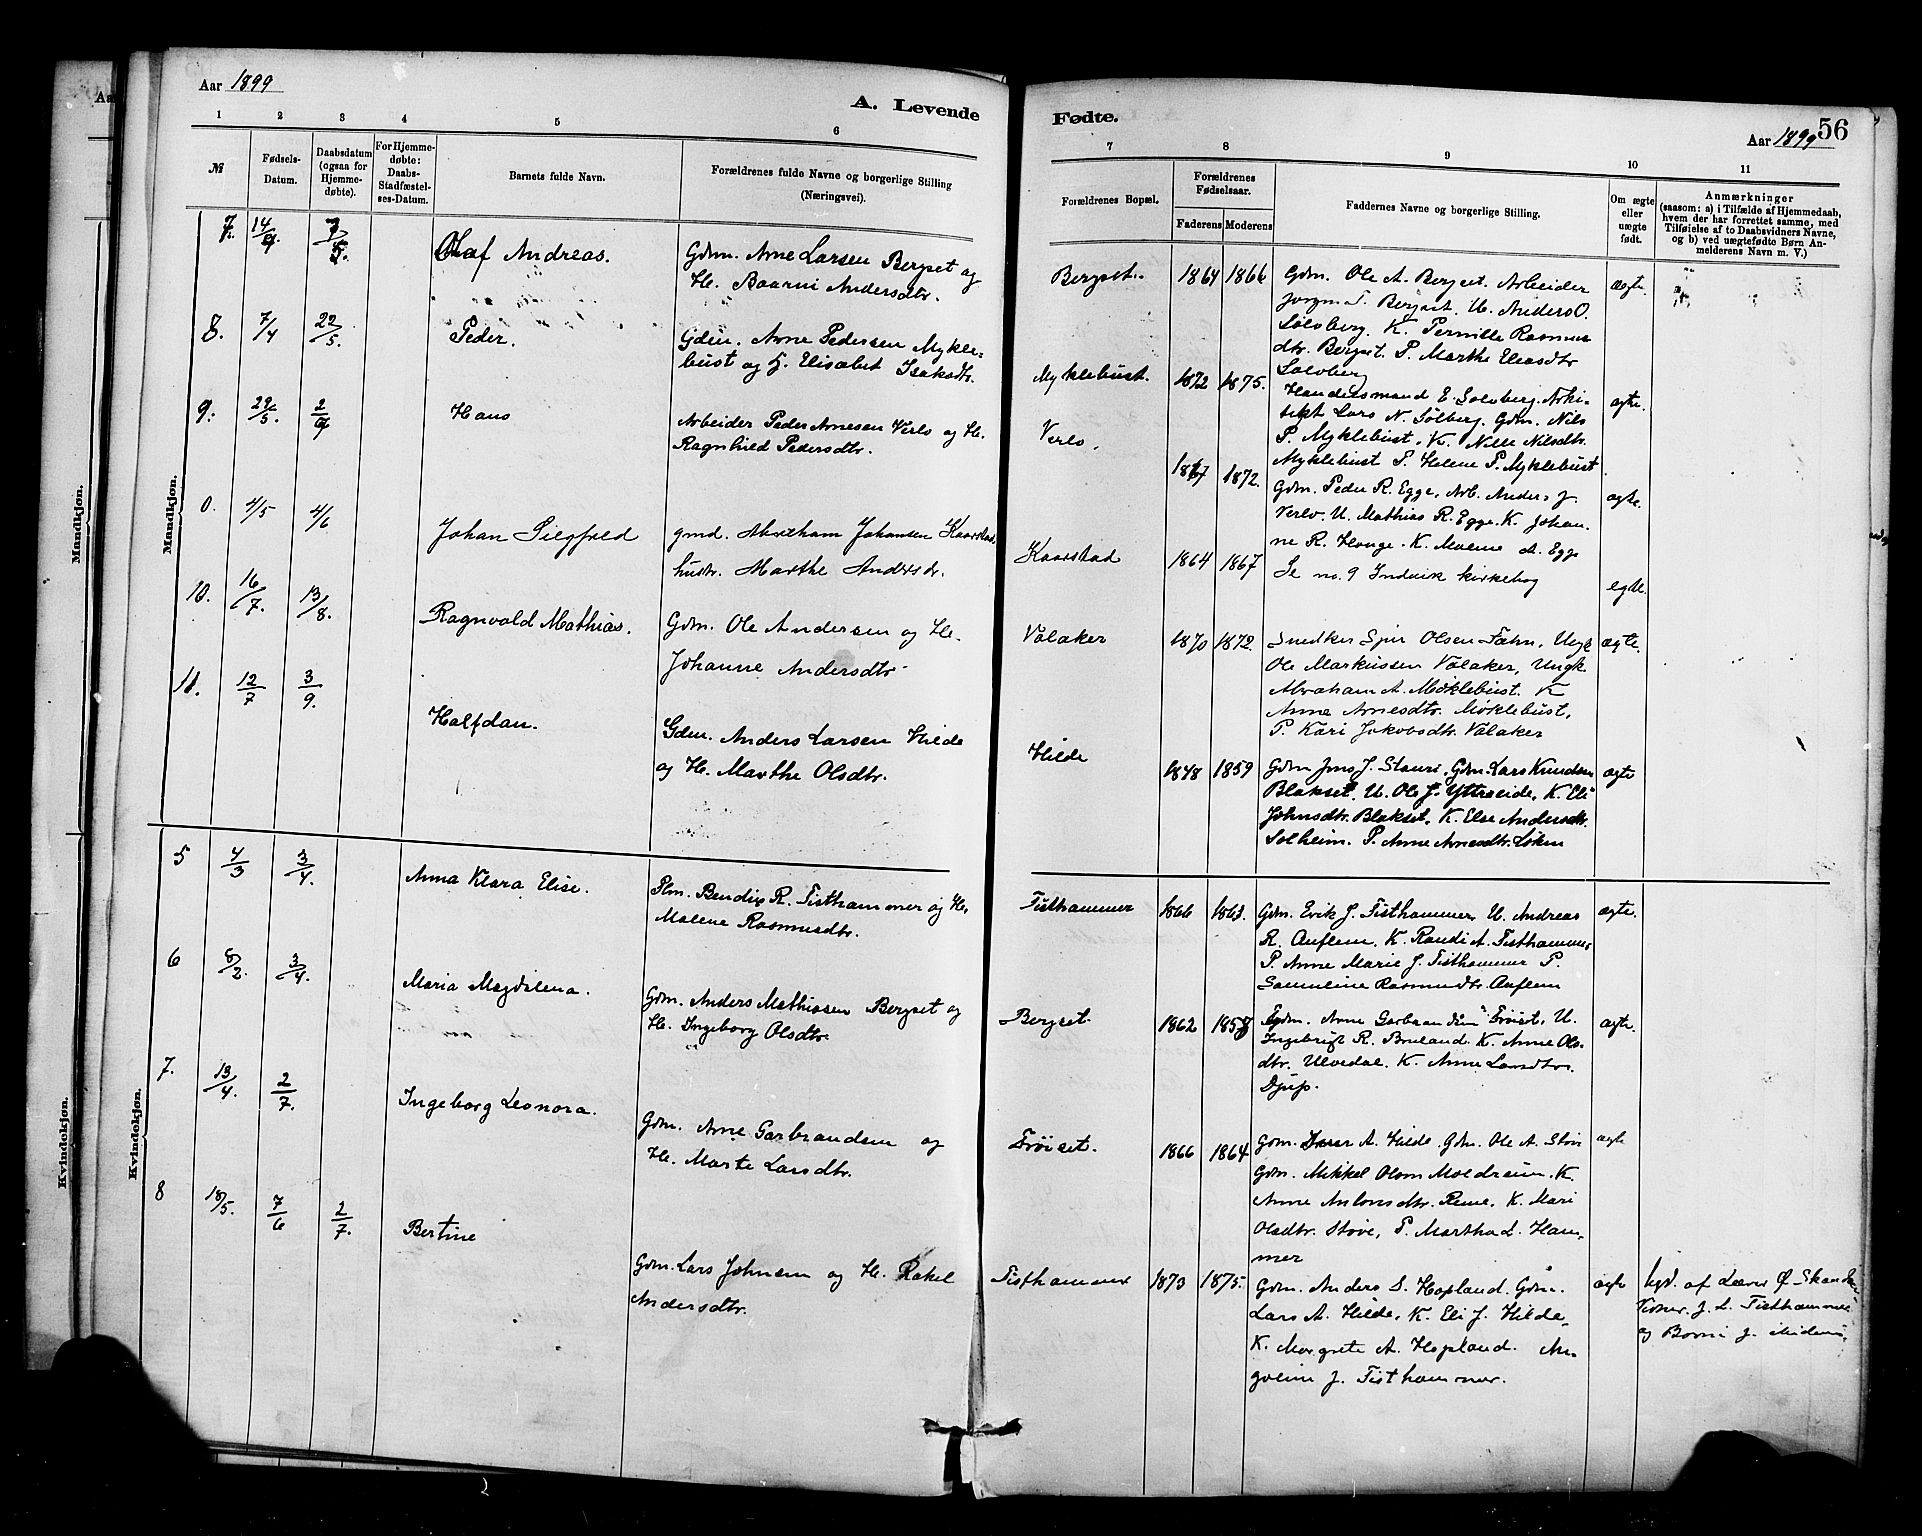 Aar 1899
A. Levende
1 2 3 4 5 6
№
Fødsels-
Datum.
Daabsdatum
(ogsaa for
Hjemme-
døbte).
For Hjemme-
døbte:
Daabs-
Stadfæstel-
ses-Datum.
Barnets fulde Navn.
Forældrenes fulde Navne og borgerlige Stilling
(Næringsvei).
Mandkjøn.
7. 14/4. 7/5. Olaf Andreas. Gdm. Arne Larsen Bergset og
H. Baarni Andersdtr.
8. 7/4 22/5. Peder. Gdm. Arne Pedersen Mykle-
bust og H. Elisabet Isaksdtr.
9. 29/5. Hans Arbeider Peder Arnesen Verlo og H.
Ragnhild Pedersdtr.
0. 4/5 4/6 Johan Siegfred gmd. Abraham Johansen Kaarstad
hustr. Marthe Andersdr.
10. 16/7. 13/8. Ragnvald Mathias. Gdm. Ole Andersen og H.
Johanne Andersdtr.
11. 12/7 3/9. Halfdan. Gdm. Anders Larsen Hilde
og H. Marthe Olsdtr.
Kvindekjøn.
5 4/3 3/4. Anna Klara Elise. Plm. Bendix R. Tisthammer og H.
Malene Rasmusdtr.
6 8/2. 3/4. Maria Magdalena. Gdm. Anders Mathiasen Bergset og
H. Ingeborg Olsdtr.
7. 13/4. 2/7. Ingeborg Leonora. Gdm. Arne Garbrandsen og
H. Marte Larsdtr.
8 18/5. 7/6 2/7. Bertine Gdm. Lars Johnsen og H. Rakel
Andersdtr.
Mandkjøn.
Kvindekjøn.
2
Fødte.
Aar 1899
56
7 8 9 10 11
Forældrenes Bopæl.
Forældrenes
Fødselsaar.
Faderens Moderens
Faddernes Navne og borgerlige Stilling.
Om ægte
eller
uægte
født.
Anmærkninger
(saasom: a) i Tilfælde af Hjemmedaab,
hvem der har forrettet samme, med
Tilføielse af to Daabsvidners Navne,
og b) ved uægtefødte Børn An-
melderens Navn m. V.)
Bergset. 1864 1866 Gdm. Ole A. Bergset. Arbeider ægte.
Bergset. U. Anders O.
Solvberg. K. Pernille Rasmus
dtr. Bergset. P. Marthe Eliasdtr
Solvberg
Myklebust. 1872 1875. Handelsmand E. Solvberg. Arki- ægte.
tekt Lars N. Solberg. Gdm. Nils
P. Myklebust. K. Nille Nilsdtr.
Myklebust P. Helene P. Myklebust
Verlo. 1867 1872. Gdm. Peder R. Egge. Arb. Anders J. ægte.
Verlo. U. Mathias R. Egge. K. Johan-
ne R. Hauge. K. Malene A. Egge
Kaarstad 1864 1867 Se no. 9 Indvik kirkebog egte.
Valaker 1870 1872. Snedker Olsen Fahn, Ungk ægte.
Ole Markussen Valaker, Ungk.
Abraham A. Møklebust. K
Anne Arnesdtr. Møklebust,
P. Kari Jakobsdtr. Valaker
Hilde 1848 1859 Gdm Jens J. Stauri. Gdm. Lars Knudsen ægte
Blakset. U. Ole J. Yttreeide. K. Eli
Johnsdtr. Blakset. K. Else Andersdtr.
Solheim. P. Anne Arnesdtr. Løken
Tisthammer 1866 1863. Gdm. Erik J. Tisthammer. U. Andreas ægte.
R. Auflem. K. Randi A. Tisthammer
P. Anne Marie J. Tisthammer P.
Rasmusdtr Auflem
Bergset. 1862 1858 Gdm. Arne Garbrandsen Frøiset. U. ægte.
Ingebrigt R. Bruland. K. Anne Ols-
dtr. Ulvedal. K. Anne Larsdtr.
Djup.
Frøiset. 1866 1864 Gdm. A. Hilde. Gdm. Ole A. Støve ægte
Gdm. Mikkel Olsen Moldreim. K
Anne Antonsdtr. Reme, K. Mari
Olsdtr. Støve, P. Martha L. Ham-
mer
Tisthammer 1873 1875. Gdm. Anders S. Hopland. Gdm. ægte
Lars A. Hilde, K. Eli J. Hilde,
K. Margrete A. Hopland.
J. Tisthammer.
af Lærer Ø.
J. L. Tisthammer
og J.